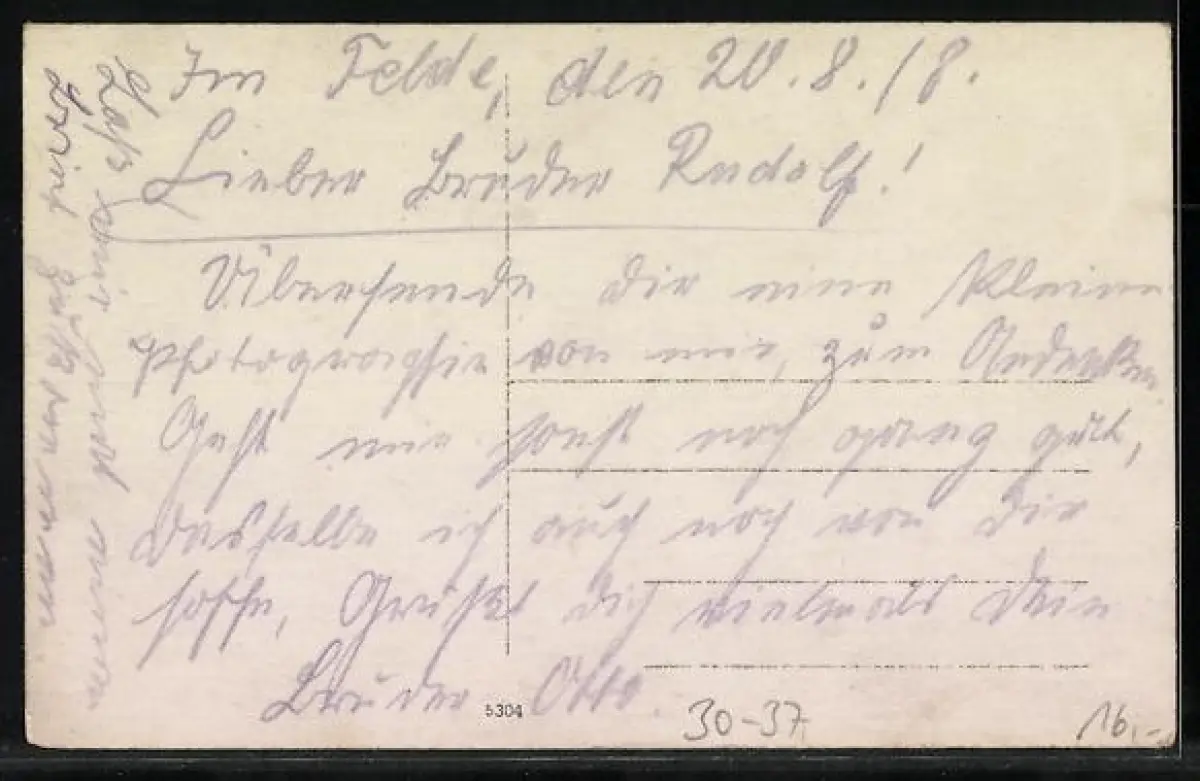 Im Felde, den 20.8.18.
Lieber Bruder Rudolf!
Übersende dir eine kleine
Photographie von mir, zum Andenken
Geht mir sonst noch ganz gut,
dasselbe ich auch noch von dir
hoffe, Grüßt dich vielmals dein
Bruder Otto.
5304
30-37
16.-
Laß mir einen
Brief